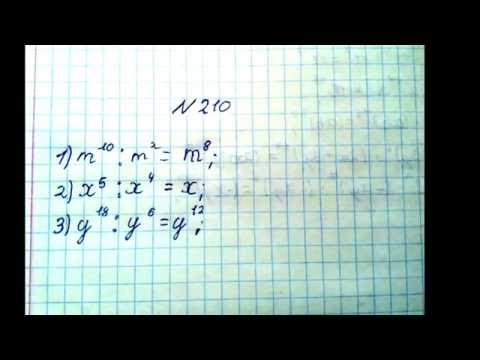 N 210
1) m¹⁰ : m² = m⁸;
2) x⁵ : x⁴ = x;
3) y¹⁸ : y⁶ = y¹²;